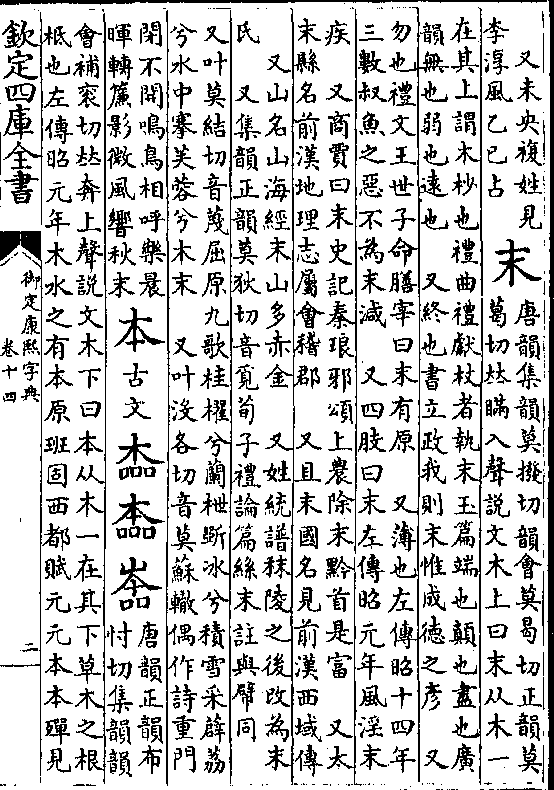 又未央複姓見
李淳風乙巳占
末
唐韻集韻莫撥切韻會莫曷切正韻莫
葛切𠀤瞞入聲說文木上曰末从木一
在其上謂木杪也禮曲禮獻杖者執末玉篇端也顛也盡也廣
韻無也弱也遠也 又終也書立政我則末惟成德之彥 又
勿也禮文王世子命膳宰曰末有原 又薄也左傳昭十四年
三數叔魚之惡不為末減 又四肢曰末左傳昭元年風淫末
疾 又商賈曰末史記秦琅邪頌上農除末黔首是富 又太
末縣名前漢地理志屬會稽郡 又且末國名見前漢西域傳
又山名山海經末山多赤金 又姓統譜秣陵之後改為末
氏 又集韻正韻莫狄切音覓荀子禮論篇絲末註與幦同
又叶莫結切音蔑屈原九歌桂櫂兮蘭枻斲冰兮積雪采薜荔
兮水中搴芙蓉兮木末 又叶沒各切音莫蘇轍偶作詩重門
閉不開鳴鳥相呼樂晨
暉轉簾影微風響秋末
本 古文
唐韻正韻布
忖切集韻韻
會補衮切𠀤奔上聲說文木下曰本从木一在其下草木之根
柢也左傳昭元年木水之有本原班固西都賦元元本本殫見
欽定四庫全書
御定康熙字典
卷十四
二